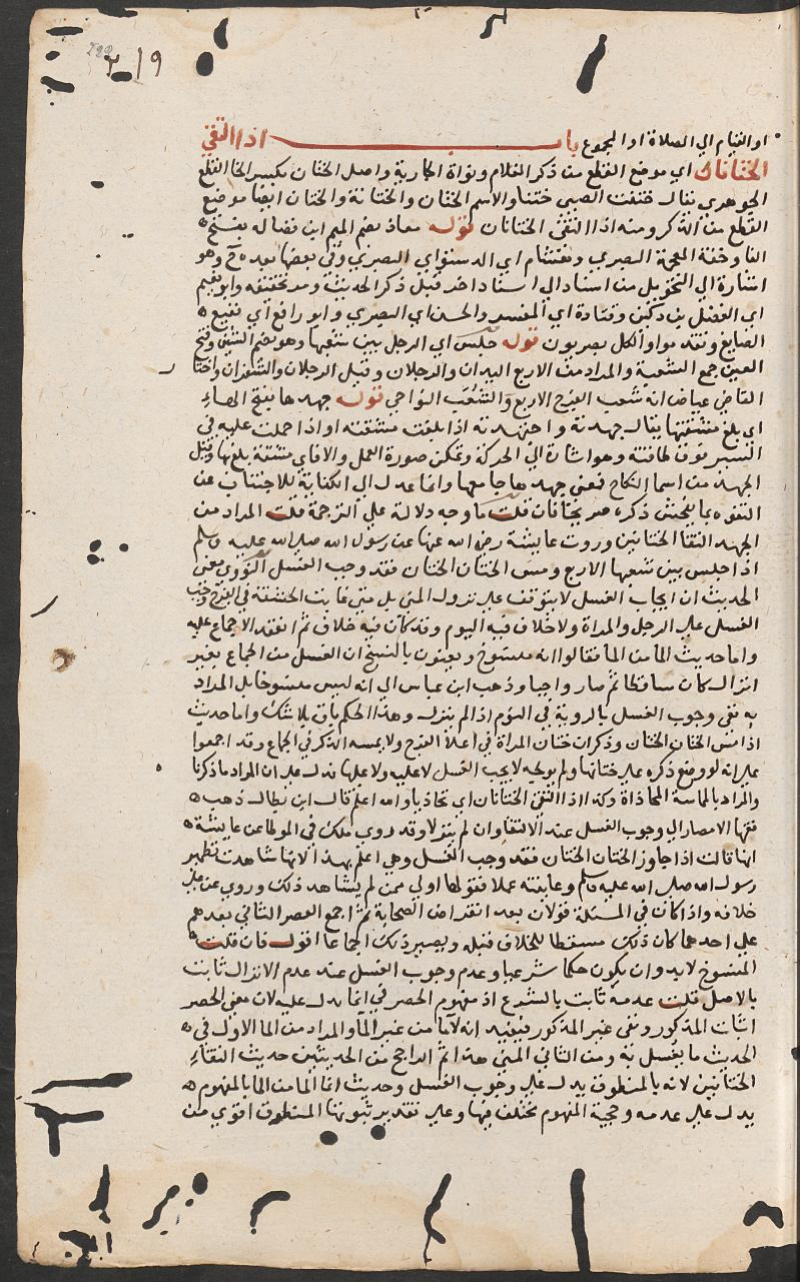 ٢١٩
او القيام الي الصلاة او المجموع باب اذا التقي
الختانان اي موضع القطع من ذكر الغلام ونواة الجارية واصل الختان بكسر الخا القطع
الجوهري يقال ختنت الصبي ختنا والاسم الختان والختانة والختان ايضا موضع
القطع من الذكر ومنه اذا التقي الختانان قوله معاذ بضم الميم ابن فضاله بفتح
الفا وخفة المعجمة البصري وهشام اي الدستواي البصري وفي بعضها بعده ح وهو
اشارة الي التحويل من اسناد الي اسناد اخر قبل ذكر الحديث ومر تحقيقه وابو نعيم
اي الفضل بن دكين وقتادة اي المفسر والحسن اي البصري وابو رافع اي نفيع
الصايغ وتقدموا والكل بصريون قوله جلس اي الرجل بين شعبها وهو بضم الشين وفتح
العين جمع الشعبة والمراد من الاربع اليدان والرجلان وقيل الرجلان والشفران واختار
القاضي عياض انه شعب الفرج الاربع والشعب النواحي قوله جهدها بفتح الهاء
اي بلغ مشقتها يقال جهدته واجتهدته اذا بلغت مشقته او اذا حملت عليه في
السير فوق طاقته وهو اشارة الي الحركة وتمكن صورة العمل والا فاي مشقة بلغ بها وقيل
الجهد من اسما النكاح فمعني جهدها جامعها وانما عدل الي الكناية للاجتناب عن
التفوه بما يفحش ذكره صريحا فان قلت ما وجه دلالة علي الترجمة قلت المراد من
الجهد التقا الختانين وروت عايشة رضي الله عنها عن رسول الله صلي الله عليه وسلم
اذا جلس بين شعبها الاربع ومس الختان الختان فقد وجب الغسل النووي معني
الحديث ان ايجاب الغسل لا يتوقف علي نزول المني بل متي غابت الحشفة في الفرج وجب
الغسل علي الرجل والمراة ولا خلاف فيه اليوم وقد كان فيه خلاف ثم انعقد الاجماع عليه
واما حديث الما من الما فقالوا انه منسوخ ويعنون بالنسخ ان الغسل من الجماع بغير
انزال كان ساقطا ثم صار واجبا وذهب ابن عباس الي انه ليس منسوخا بل المراد
به نفي وجوب الغسل بالروية في النوم اذا لم ينزل وهذا الحكم باق بلا شك واما حديث
اذا مس الختان الختان وذكر ان ختان المراة في اعلا الفرج ولا يمسه الذكر في الجماع وقد اجمعوا
علي انه لو وضع ذكره علي ختانها ولم يولجه لا يجب الغسل لا عليه ولا عليها فدل علي ان المراد ما ذكرنا
والمراد بالمماسة المحاذاة وكذا اذا التقي الختانان اي تحاذيا والله اعلم قال ابن بطال ذهب
فقها الامصار الي وجوب الغسل عند الالتقا وان لم ينزلا وقد روي ملك في الموطا عن عايشة
انها قالت اذا جاوز الختان الختان فقد وجب الغسل وهي اعلم بهذا لانها شاهدت تطهير
رسول الله صلي الله عليه وسلم وعاينته عملا فقولها اولي ممن لم يشاهد ذلك وروي عن علي
خلافه واذا كان في المسئلة قولان بعد انقراض الصحابة ثم اجمع العصر الثاني بعدهم
علي احدهما كان ذلك مسقطا للخلاف قبله ويصير ذلك اجماعا اقول فان قلت
المنسوخ لابد وان يكون حكما شرعيا وعدم وجوب الغسل عند عدم الانزال ثابت
بالاصل قلت عدمه ثابت بالشرع اذ مفهوم الحصر في انما يدل عليه لان معني الحصر
اثبات المذكور ونفي غير المذكور فيفيد انه لا ما من غير الما والمراد من الما الاول في
الحديث ما يغسل به ومن الثاني المني هذا ثم الراجح من الحديثين حديث التقاء
الختانين لانه بالمنطوق يدل علي وجوب الغسل وحديث انما الما من الما بالمفهوم
يدل علي عدمه وحجية المفهوم مختلف فيها وعلي تقدير ثبوتها المنطوق اقوي من